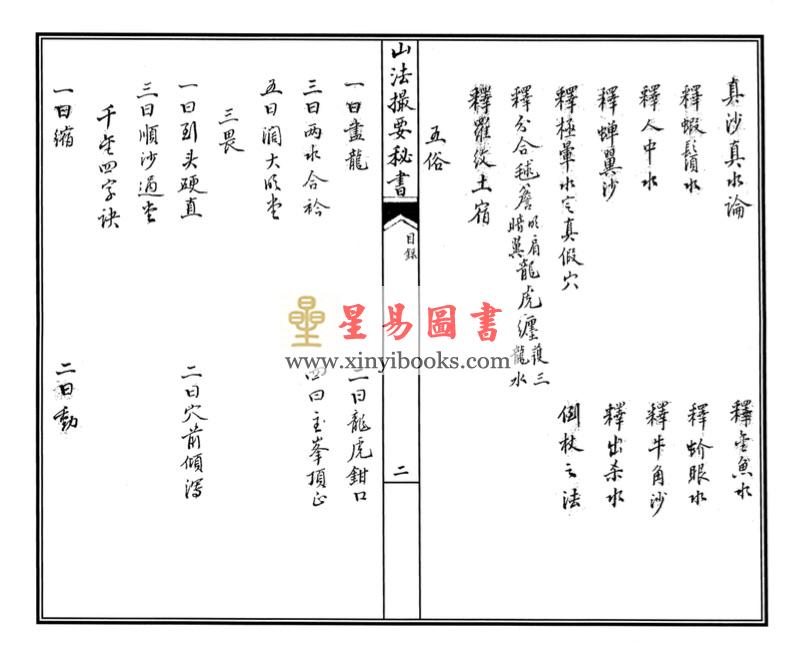 真沙真水論 釋金魚水
釋蝦鬚水 釋蚧眼水
釋人中水 釋牛角沙
釋蟬翼沙 釋出杀水
釋極暈水定真假穴 倒杖之法
釋分合毬簷 明肩 暗翼 龍虎纏護 三龍水
釋羅紋土宿
五俗
山法撮要秘書
目錄
二
一曰盡龍 二曰龍虎鉗口
三曰两水合衿 四曰主峯頂正
五曰濶大明堂
三畏
一曰到头硬直 二曰穴前傾瀉
三曰順沙過堂
千金四字訣
一曰縮 二曰動
星易圖書
www.xinyibooks.com